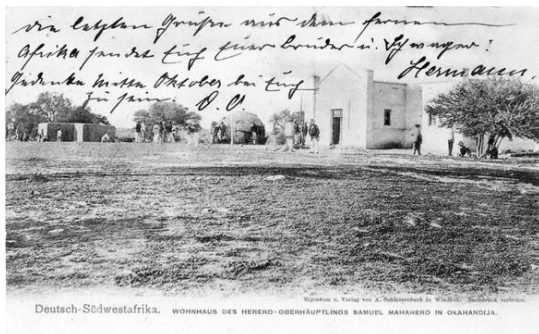 die letzten Grüße aus dem fernen
Afrika sendet Euch Euer Bruder u. Schwager!
Gedenke Mitte Oktober bei Euch Hermann.
zu sein
Eigentum u. Verlag von A. Schlüsenbach in Windhuk. Nachdruck verboten.
Deutsch-Südwestafrika. WOHNHAUS DES HERERO-OBERHÄUPTLINGS SAMUEL MAHAHERO IN OKAHANDIJA.